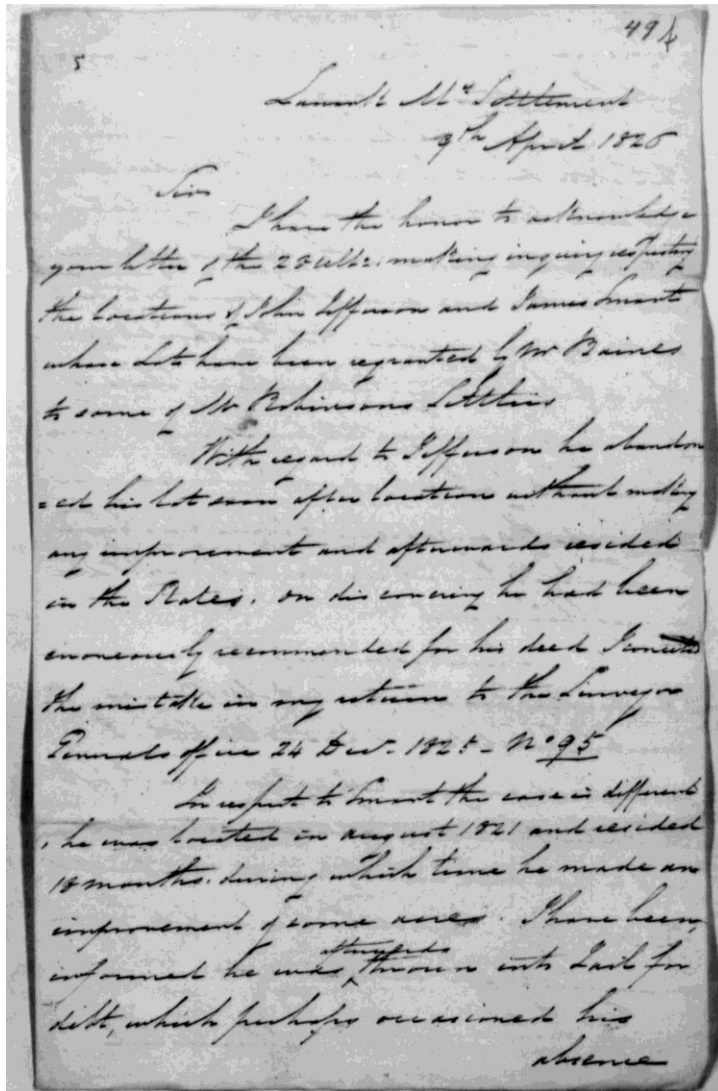 49
5
Lanark My. Settlement
9th April 1826
Sir
I have the honor to acknowledge
your letter of the 28 Ulto. making inquiry respecting
the locations of John Jefferson and James Smart
whose Lots have been regranted by Mr Baines
to some of Mr Robinsons Settlers
With regard to Jefferson he abandon
=ed his lot soon after location without making
any improvement and afterwards resided
in the States. On discovering he had been
erroneously recommended for his deed I corrected
the mistake in my return to the Surveyor
Generals office 24 Decr. 1825 - No 95
In respect to Smart the case is different
, he was located in August 1821 and resided
18 months. during which time he made an
improvement of some acres. I have been,
informed he was afterwards thrown into Jail for
debt, which perhaps occasioned his
absence